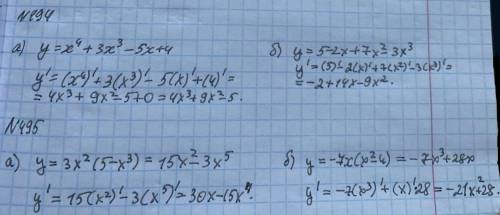 №494
а) y=x⁴+3x³-5x+4
y'=(x⁴)'+3(x³)'-5(x)'+(4)'=
=4x³+9x²-5+0=4x³+9x²-5.
б) y=5-2x+7x²-3x³
y'=(5)'-2(x)'+7(x²)'-3(x³)'=
=-2+14x-9x².
№495
а) y=3x²(5-x³)=15x²-3x⁵
y'=15(x²)'-3(x⁵)'=30x-15x⁴.
б) y=-7x(x²-4)=-7x³+28x
y'=-7(x³)'+(x)'28=-21x²+28.